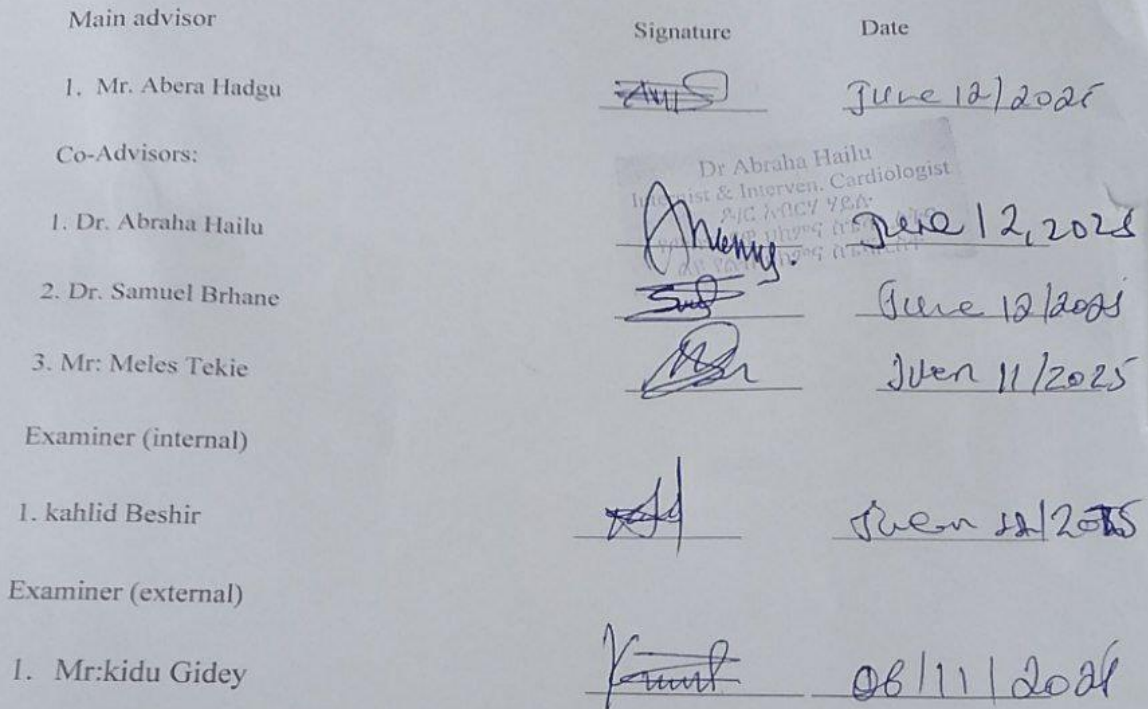 Main advisor Signature Date
1. Mr. Abera Hadgu June 12/2025
Co-Advisors:
Dr Abraha Hailu
Internist & Interven. Cardiologist
1. Dr. Abraha Hailu June 12, 2025
2. Dr. Samuel Brhane June 12/2025
3. Mr: Meles Tekie Juen 11/2025
Examiner (internal)
1. kahlid Beshir Juen 11/2025
Examiner (external)
1. Mr:kidu Gidey 06/11/2025